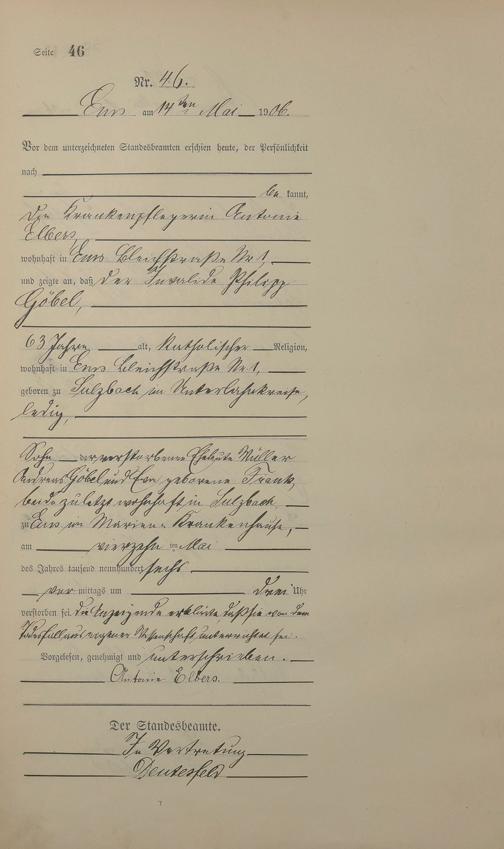 Seite 46
Nr. 46.
Ems am 14ten Mai 1906.
Vor dem unterzeichneten Standesbeamten erschien heute, der Persönlichkeit
nach
be kannt,
die Krankenpflegerin Antonie
Elbers,
wohnhaft in Ems Bleichstraße Nr 1,
und zeigte an, daß der Invalide Philipp
Göbel,
63 Jahre alt, katholischer Religion,
wohnhaft in Ems Bleichstraße Nr 1,
geboren zu Sulzbach im Unterlahnkreise,
ledig,
Sohn der verstorbenen Eheleute Müller
Andreas Göbel und Eva, geborene
beide zuletzt wohnhaft in Sulzbach
zu Ems im Marien-Krankenhause,
am vierzehn ten Mai
des Jahres tausend neunhundert sechs
vor mittags um drei Uhr
verstorben sei. Die Anzeigende erklärte, daß sie von dem
Todesfall aus eigener Wissenschaft unterrichtet sei.
Vorgelesen, genehmigt und unterschrieben.
Antonie Elbers.
Der Standesbeamte.
In Vertretung